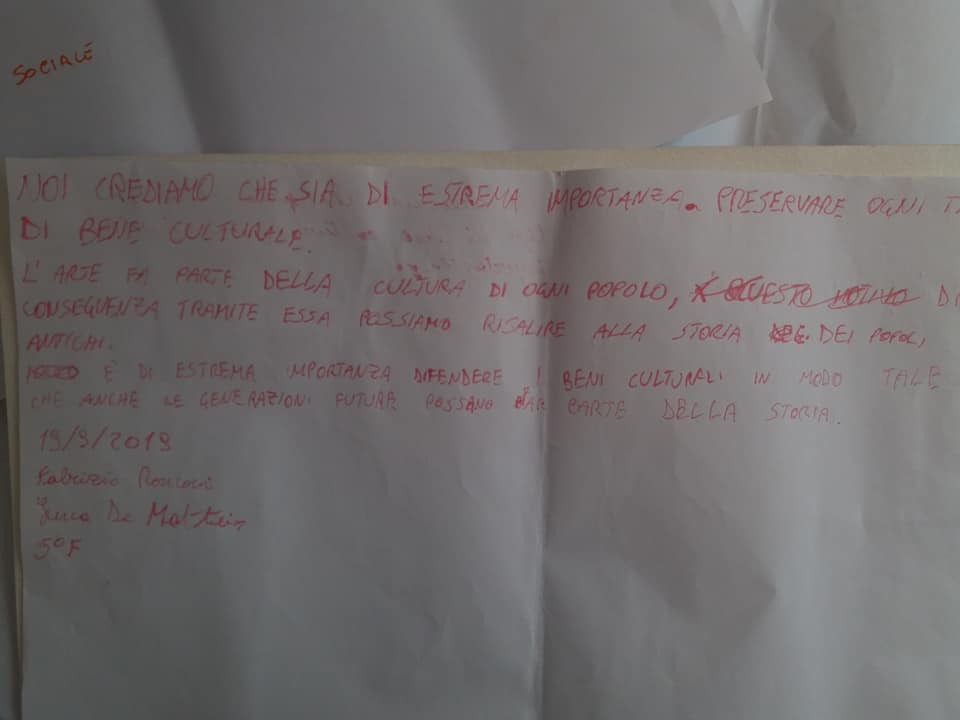 SOCIALE
NOI CREDIAMO CHE SIA DI ESTREMA IMPORTANZA PRESERVARE OGNI
DI BENE CULTURALE.
L'ARTE FA PARTE DELLA CULTURA DI OGNI POPOLO, QUESTO DI
CONSEGUENZA TRAMITE ESSA POSSIAMO RISALIRE ALLA STORIA DEI POPOLI
ANTICHI.
È DI ESTREMA IMPORTANZA DIFENDERE I BENI CULTURALI IN MODO TALE
CHE ANCHE LE GENERAZIONI FUTURE POSSANO FAR PARTE DELLA STORIA.
19/9/2019
Fabrizio
De
5°F